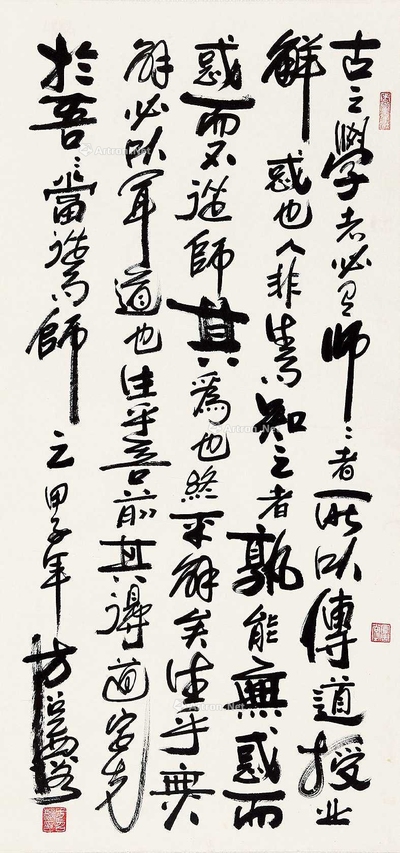 古之學者必有師〻者所以傳道授业
觧惑也人非生而知之者孰能無惑而
惑而不從師其為也終不解矣生乎
解必道也生乎吾前其得道先
於吾〻當從而師之甲子年方召麐
Artron.Net